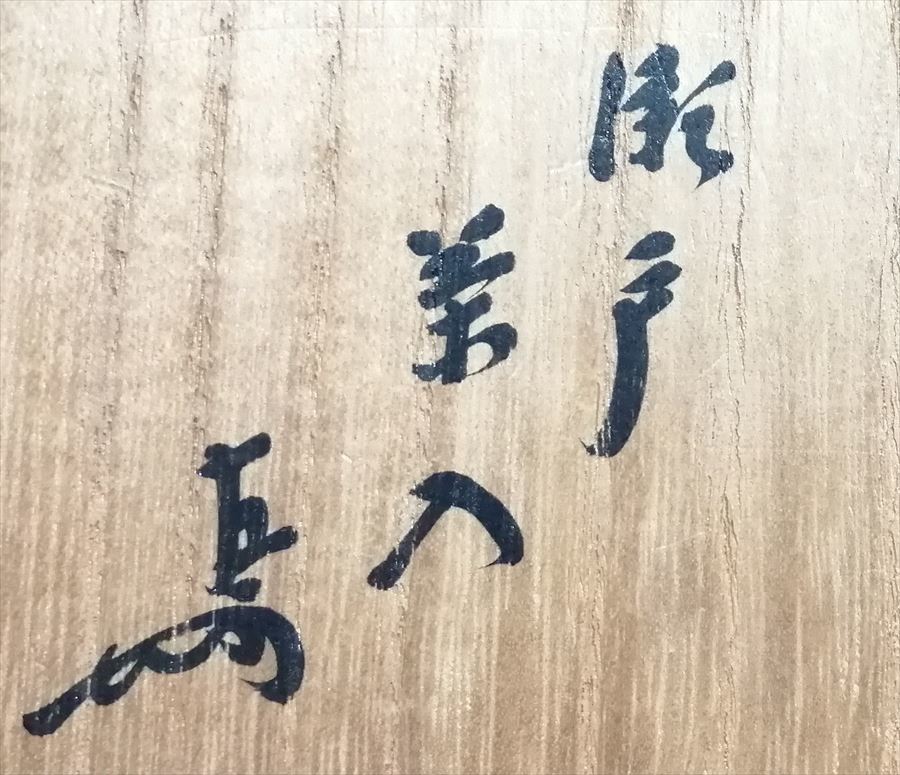 瀬戸
茶入